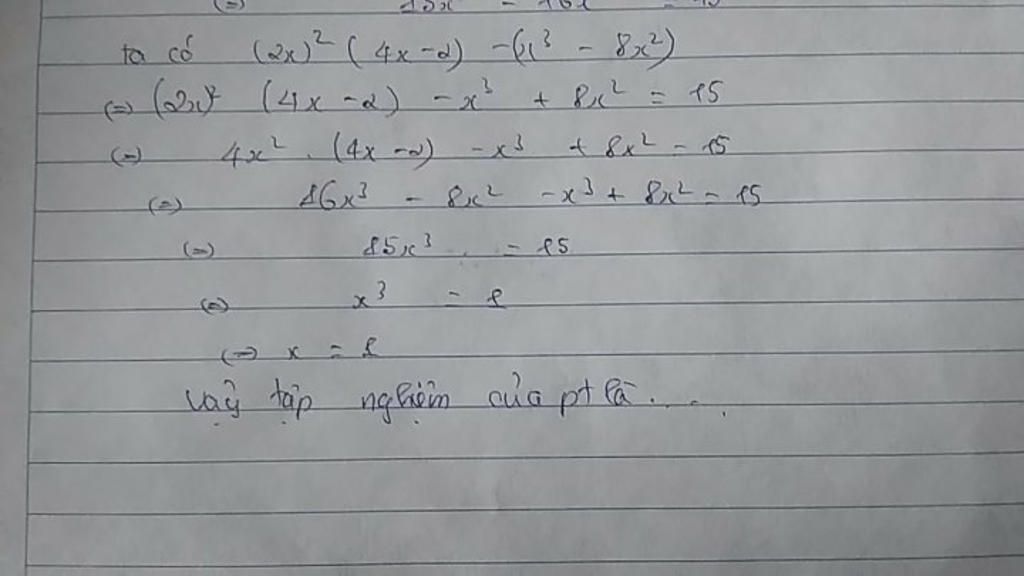 (=) 15x³ - 16x = 15
ta có (2x)² (4x-2) -(x³ - 8x²)
(=) (2x)² (4x-2) - x³ + 8x² = 15
(=) 4x² . (4x-2) - x³ + 8x² = 15
(=) 16x³ - 8x² - x³ + 8x² = 15
(=) 15x³ = 15
(=) x³ = 1
(=) x = 1
Vậy tập nghiệm của pt là ....